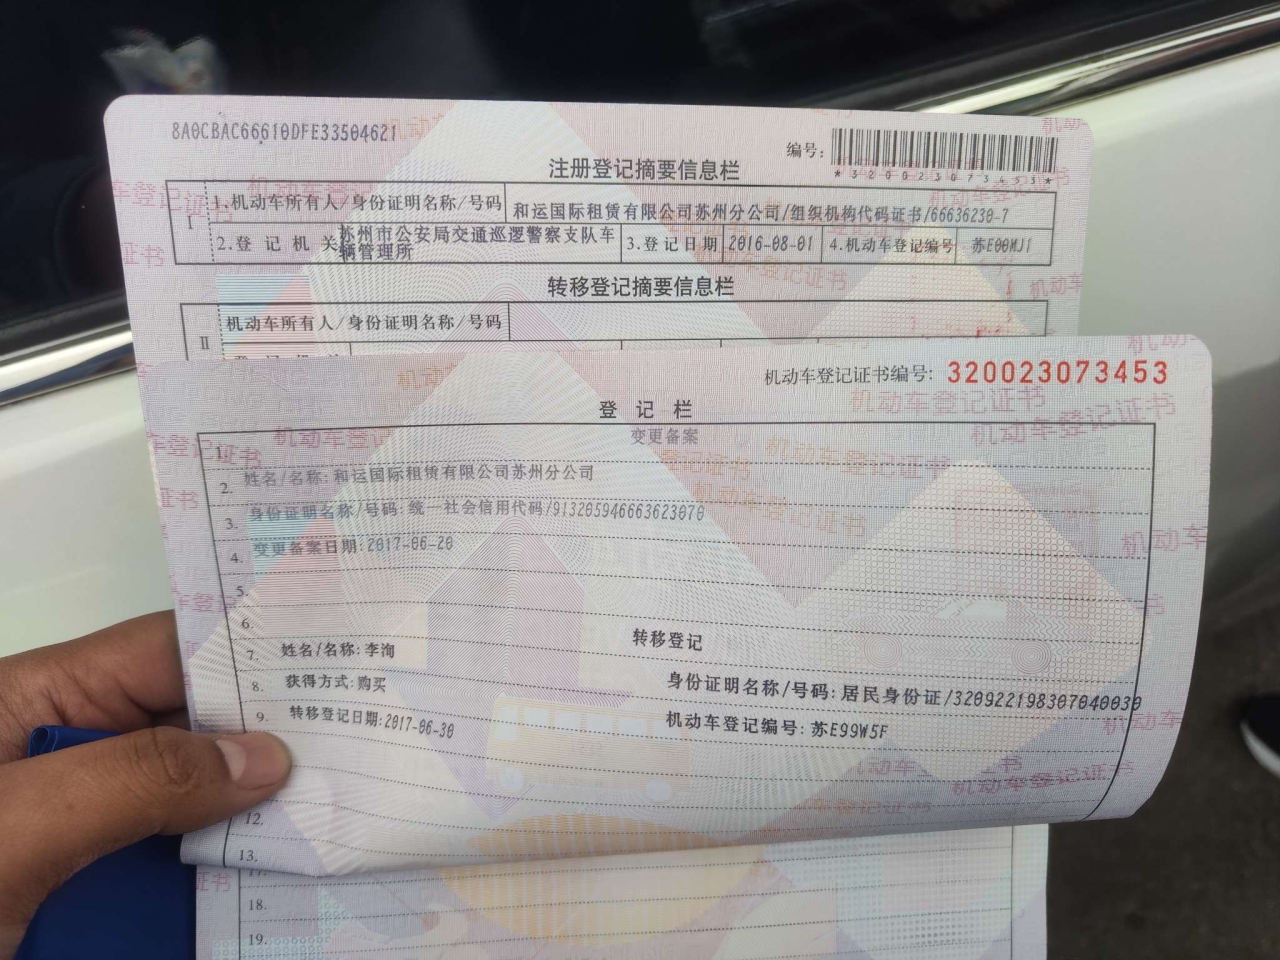 8A0CBAC66610DFE33504621
编号:
*320023073453*
注册登记摘要信息栏
I
1.机动车所有人/身份证明名称/号码
和运国际租赁有限公司苏州分公司/组织机构代码证书/66636230-7
2.登记机关
苏州市公安局交通巡逻警察支队车辆管理所
3.登记日期
2016-08-01
4.机动车登记编号
苏E00MJ1
转移登记摘要信息栏
II
机动车所有人/身份证明名称/号码
机动车登记证书编号:
320023073453
登记栏
1.
变更备案
2.
姓名/名称:和运国际租赁有限公司苏州分公司
3.
身份证明名称/号码:统一社会信用代码/913205946663623070
4.
变更备案日期:2017-06-20
5.
6.
转移登记
7.
姓名/名称:李洵
身份证明名称/号码:居民身份证/320922198307040030
8.
获得方式:购买
机动车登记编号:苏E99W5F
9.
转移登记日期:2017-06-30
12.
13.
17.
18.
19.